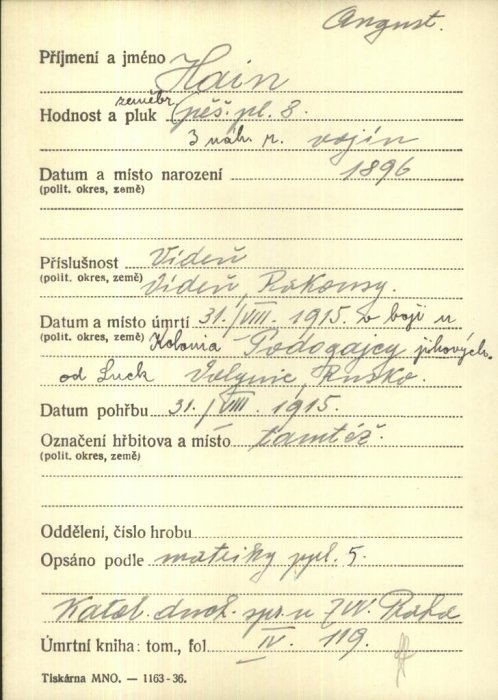 August.
Příjmení a jméno Hain
zeměbr.
Hodnost a pluk pěš. pl. 8.
3 náh. r. vojín
Datum a místo narození 1896
(polit. okres, země)
Příslušnost Vídeň
(polit. okres, země) Vídeň, Rakousy.
Datum a místo úmrtí 31./VIII. 1915. v boji u
(polit. okres, země) Kolonia Podogajcy jihových.
od Luck Volynie, Rusko.
Datum pohřbu 31./VIII. 1915.
Označení hřbitova a místo tamtéž.
(polit. okres, země)
Oddělení, číslo hrobu
Opsáno podle matriky ppl. 5.
Katol. duch. spr. u ZVV. Praha
Úmrtní kniha: tom., fol. IV. 119.
Tiskárna MNO. — 1163-36.